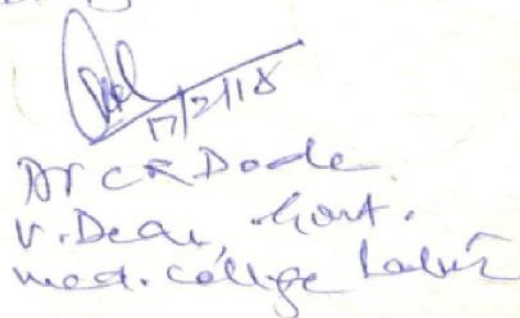 17/2/18
Dr C R Dode
V. Dean, Govt.
med. college